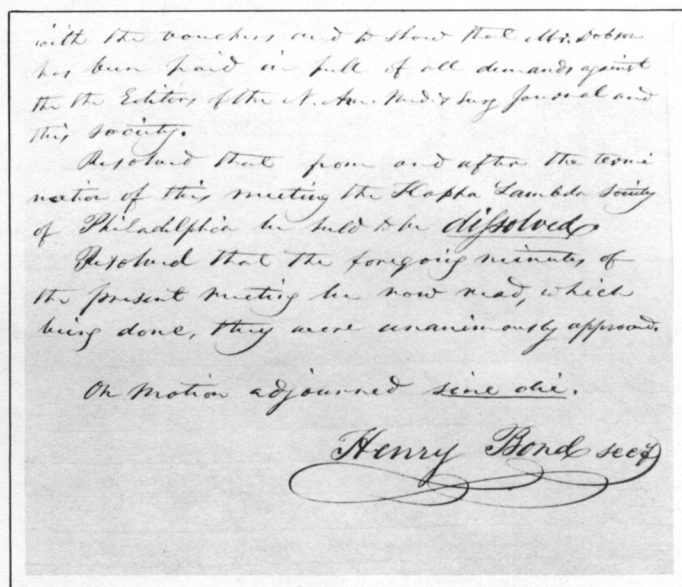 with the vouchers and to show that Mr. Dobson
has been paid in full of all demands against
the the Editors of the N. Am. Med & Surg Journal and
this society.
Resolved that from and after the termi
nation of this meeting the Kappa Lambda Society
of Philadelphia be held to be dissolved.
Resolved that the foregoing minutes of
the present meeting be now read, which
being done, they were unanimously approved.
On motion adjourned sine die.
Henry Bond secy